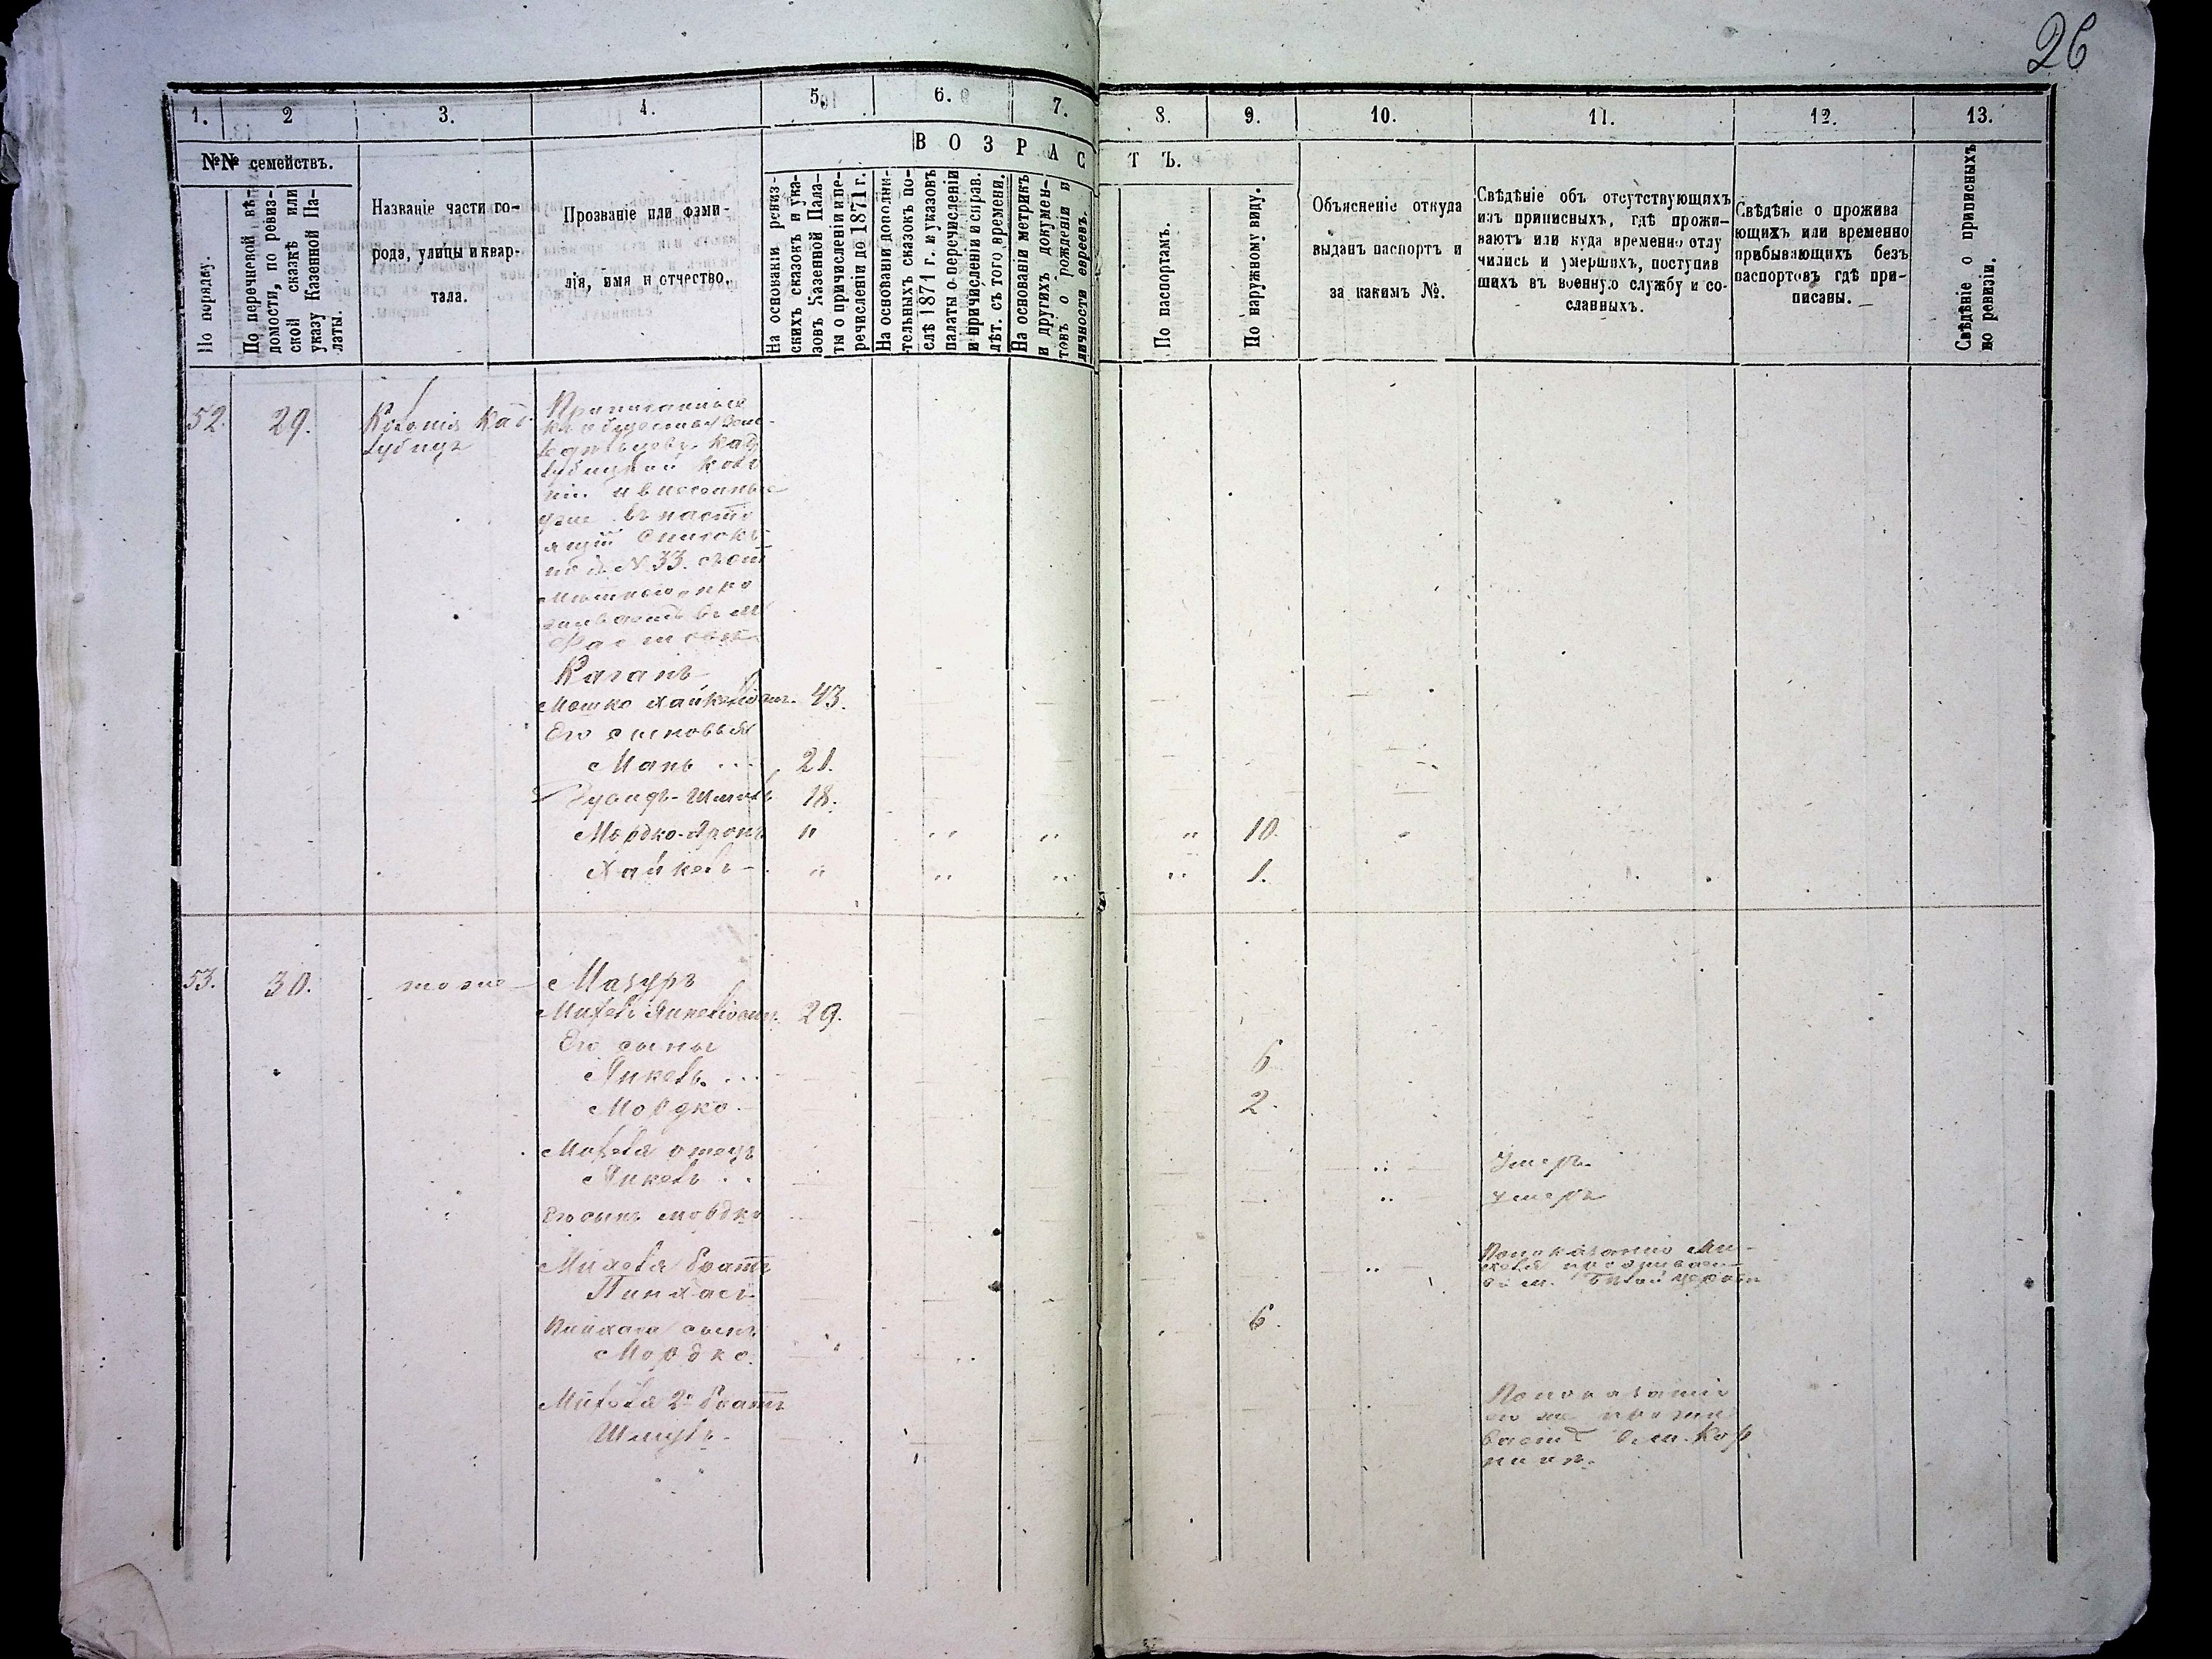 26
1. 2 3. 4. 5. 6. 7. 8. 9. 10. 11. 12. 13.
В О З Р А С Т Ъ.
№№ семействъ.
По порядку.
По перечневой вѣ-
домости, по ревиз-
ской сказкѣ или
указу Казенной Па-
латы.
Названіе части го-
рода, улицы и квар-
тала.
Прозваніе или фами-
лія, имя и отчество.
На основаніи ревиз-
скихъ сказокъ и ука-
зовъ Казенной Пала-
ты о причисленіи и пе-
речисленіи до 1871 г.
На основаніи дополни-
тельныхъ сказокъ по-
слѣ 1871 г. и указовъ
палаты о перечисленіи
и причисленіи и справ.
лѣт. съ того времени.
На основаніи метрикъ
и другихъ докумен-
товъ о рожденіи и
личности евреевъ.
По паспортамъ.
По наружному виду.
Объясненіе откуда
выданъ паспортъ и
за какимъ №.
Свѣдѣніе объ отсутствующихъ
изъ приписныхъ, гдѣ прожи-
ваютъ или куда временно отлу
чились и умершихъ, поступив
шихъ въ военную службу и со-
сланныхъ.
Свѣдѣніе о прожива
ющихъ или временно
прибывающихъ безъ
паспортовъ гдѣ при-
писаны.
Свѣдѣніе о приписныхъ
по ревизіи.
52. 29. Колонія Кад
лубицъ
Приписанные
къ обществу
Кад
лубицкой коло
ніи и внесенные
уже въ насто
ящій списокъ
подъ N. 33. съ от
мѣткою, про
живаютъ въ м
Каганъ
Мошко Хайкелевичъ. 43.
Его сыновья
Мань ... 21.
18.
Мордко-Аронъ " " " " 10.
Хайкель - " " " " 1.
53. 30. тоже Мазуръ
Михель Янкелевичъ. 29.
Его сыны
Янкель. ... 6
Мордко. 2.
Михеля отецъ
Янкель .. умеръ.
Его сынъ Мордко умеръ
Михеля братъ
Пинхасъ
По показанію Ми-
хеля проживаетъ
въ м. Бѣлой церкви
Пинхаса сынъ
Мордко. 6.
Михеля 2й братъ
Шмуль.
По показанію
его же прожи
ваетъ въ м. Кор
нинѣ.